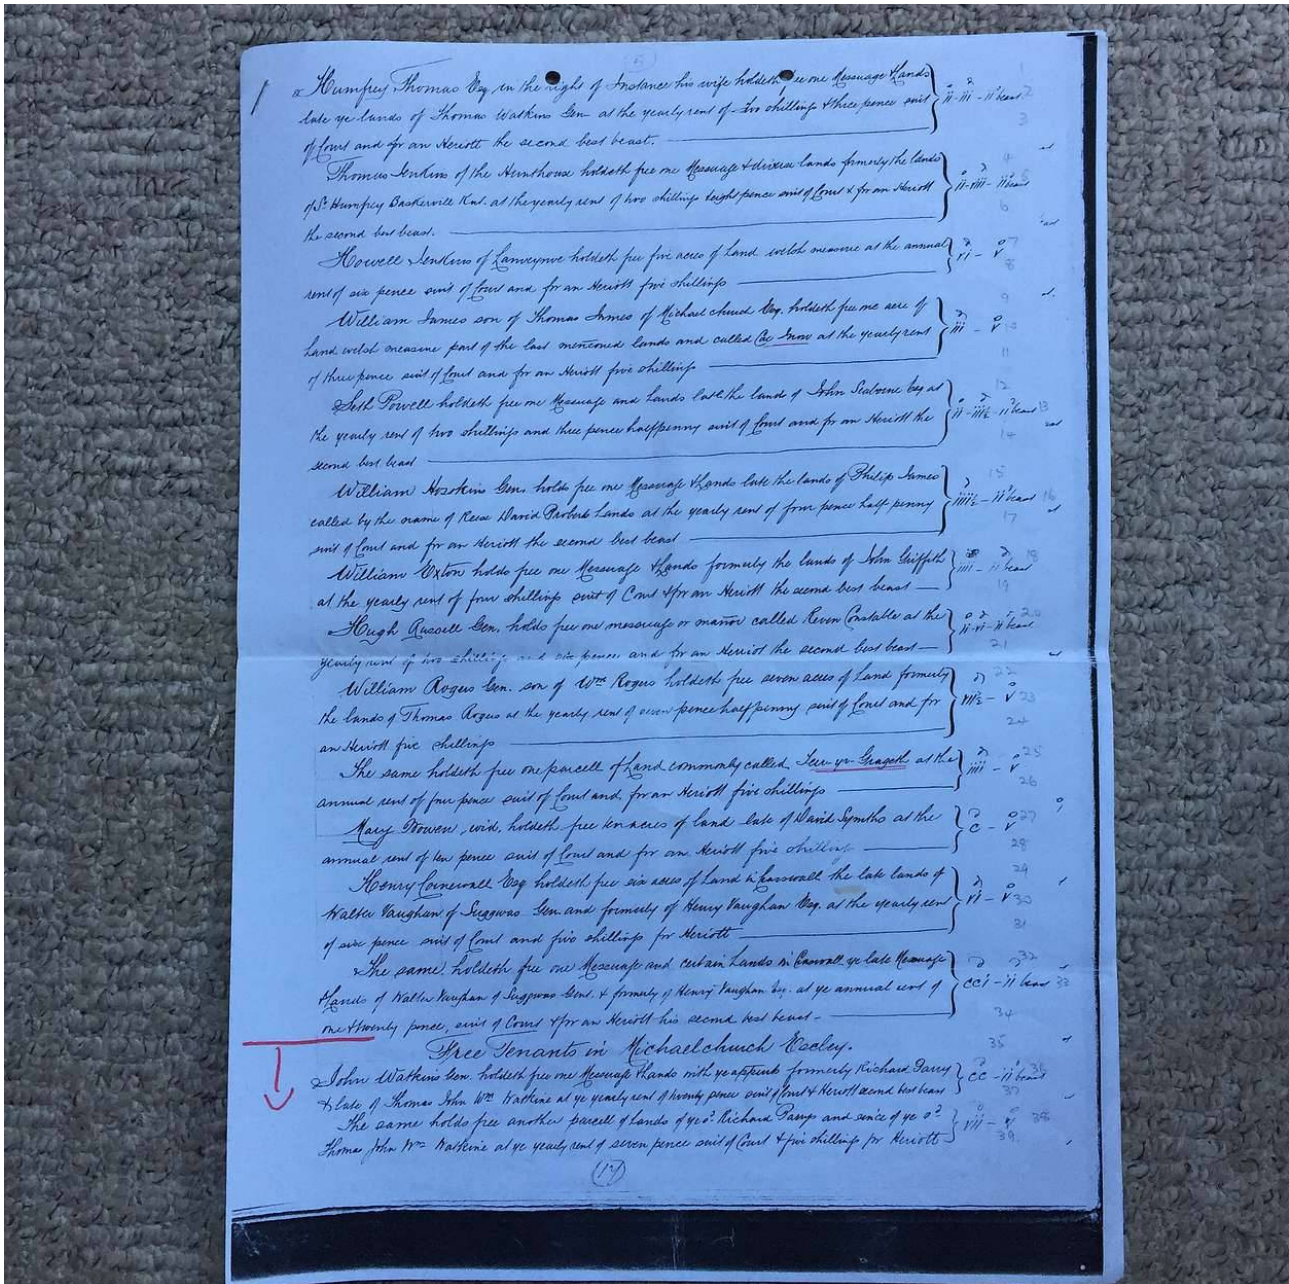 Humfrey Thomas Esq in the right of Instance his wife holdeth free one Messuage & Lands
late ye lands of Thomas Watkins Gen at the yearly rent of Two shillings & three pence suit
of Court and for an Heriott the second best beast.
Thomas Jenkins of the Hunthouse holdeth free one Messuage & divers lands formerly the lands
of Sr Humfrey Baskerville Knt. at the yearly rent of two shillings & eight pence suit of Court & for an Heriott
the second best beast.
Howell Jenkins of holdeth free five acres of Land welsh measure at the annual
rent of six pence suit of Court and for an Heriott five shillings
William James son of Thomas James of Michaelchurch Esq. holdeth free one acre of
Land welsh measure part of the last mencioned lands and called at the yearly rent
of three pence suit of Court and for an Heriott five shillings
Seth Powell holdeth free one Messuage and Lands late the lands of John Esq at
the yearly rent of two shillings and three pence halfpenny suit of Court and for an Heriott the
second best beast
William Hosskins Gen. holds free one Messuage & Lands late the lands of Philip James
called by the name of Reese David Proberts Lands at the yearly rent of four pence half penny
suit of Court and for an Heriott the second best beast
William Exton holds free one Messuage & Lands formerly the lands of John Griffith
at the yearly rent of four shillings suit of Court & for an Heriott the second best beast
Hugh Russell Gen. holds free one messuage or manor called Constable at the
yearly rent of two shillings and six pence and for an Heriot the second best beast
William Rogers Gen. son of Wm Rogers holdeth free seven acres of Land formerly
the lands of Thomas Rogers at the yearly rent of seven pence halfpenny suit of Court and for
an Heriott five shillings
The same holdeth free one parcell of Land commonly called at the
annual rent of four pence suit of Court and for an Heriott five shillings
Mary Bowen, wid, holdeth free ten acres of land late of David Symths at the
annual rent of ten pence suit of Court and for an Heriott five shillings
Henry Cornewall Esq holdeth free six acres of Land in the late lands of
Walter Vaughan of Suggwas Gen. and formerly of Henry Vaughan Esq. at the yearly rent
of six pence suit of Court and five shillings for Heriott
The same holdeth free one Messuage and certain Lands in ye late Messuage
& Lands of Walter Vaughan of Suggwas Gent. & formerly of Henry Vaughan Esq. at ye annual rent of
one & twenty pence, suit of Court & for an Heriott his second best beast.
Free Tenants in Michaelchurch Escley.
John Watkins Gen. holdeth free one Messuage & Lands with ye appurts formerly Richard Parry
& late of Thomas John Wm Watkins at ye yearly rent of twenty pence suit of Court & Heriott second best beast
The same holds free another parcel of Lands of ye sd Richard Parry and since of ye sd
Thomas John Wm Watkins at ye yearly rent of seven pence suit of Court & five shillings for Heriott
(17)